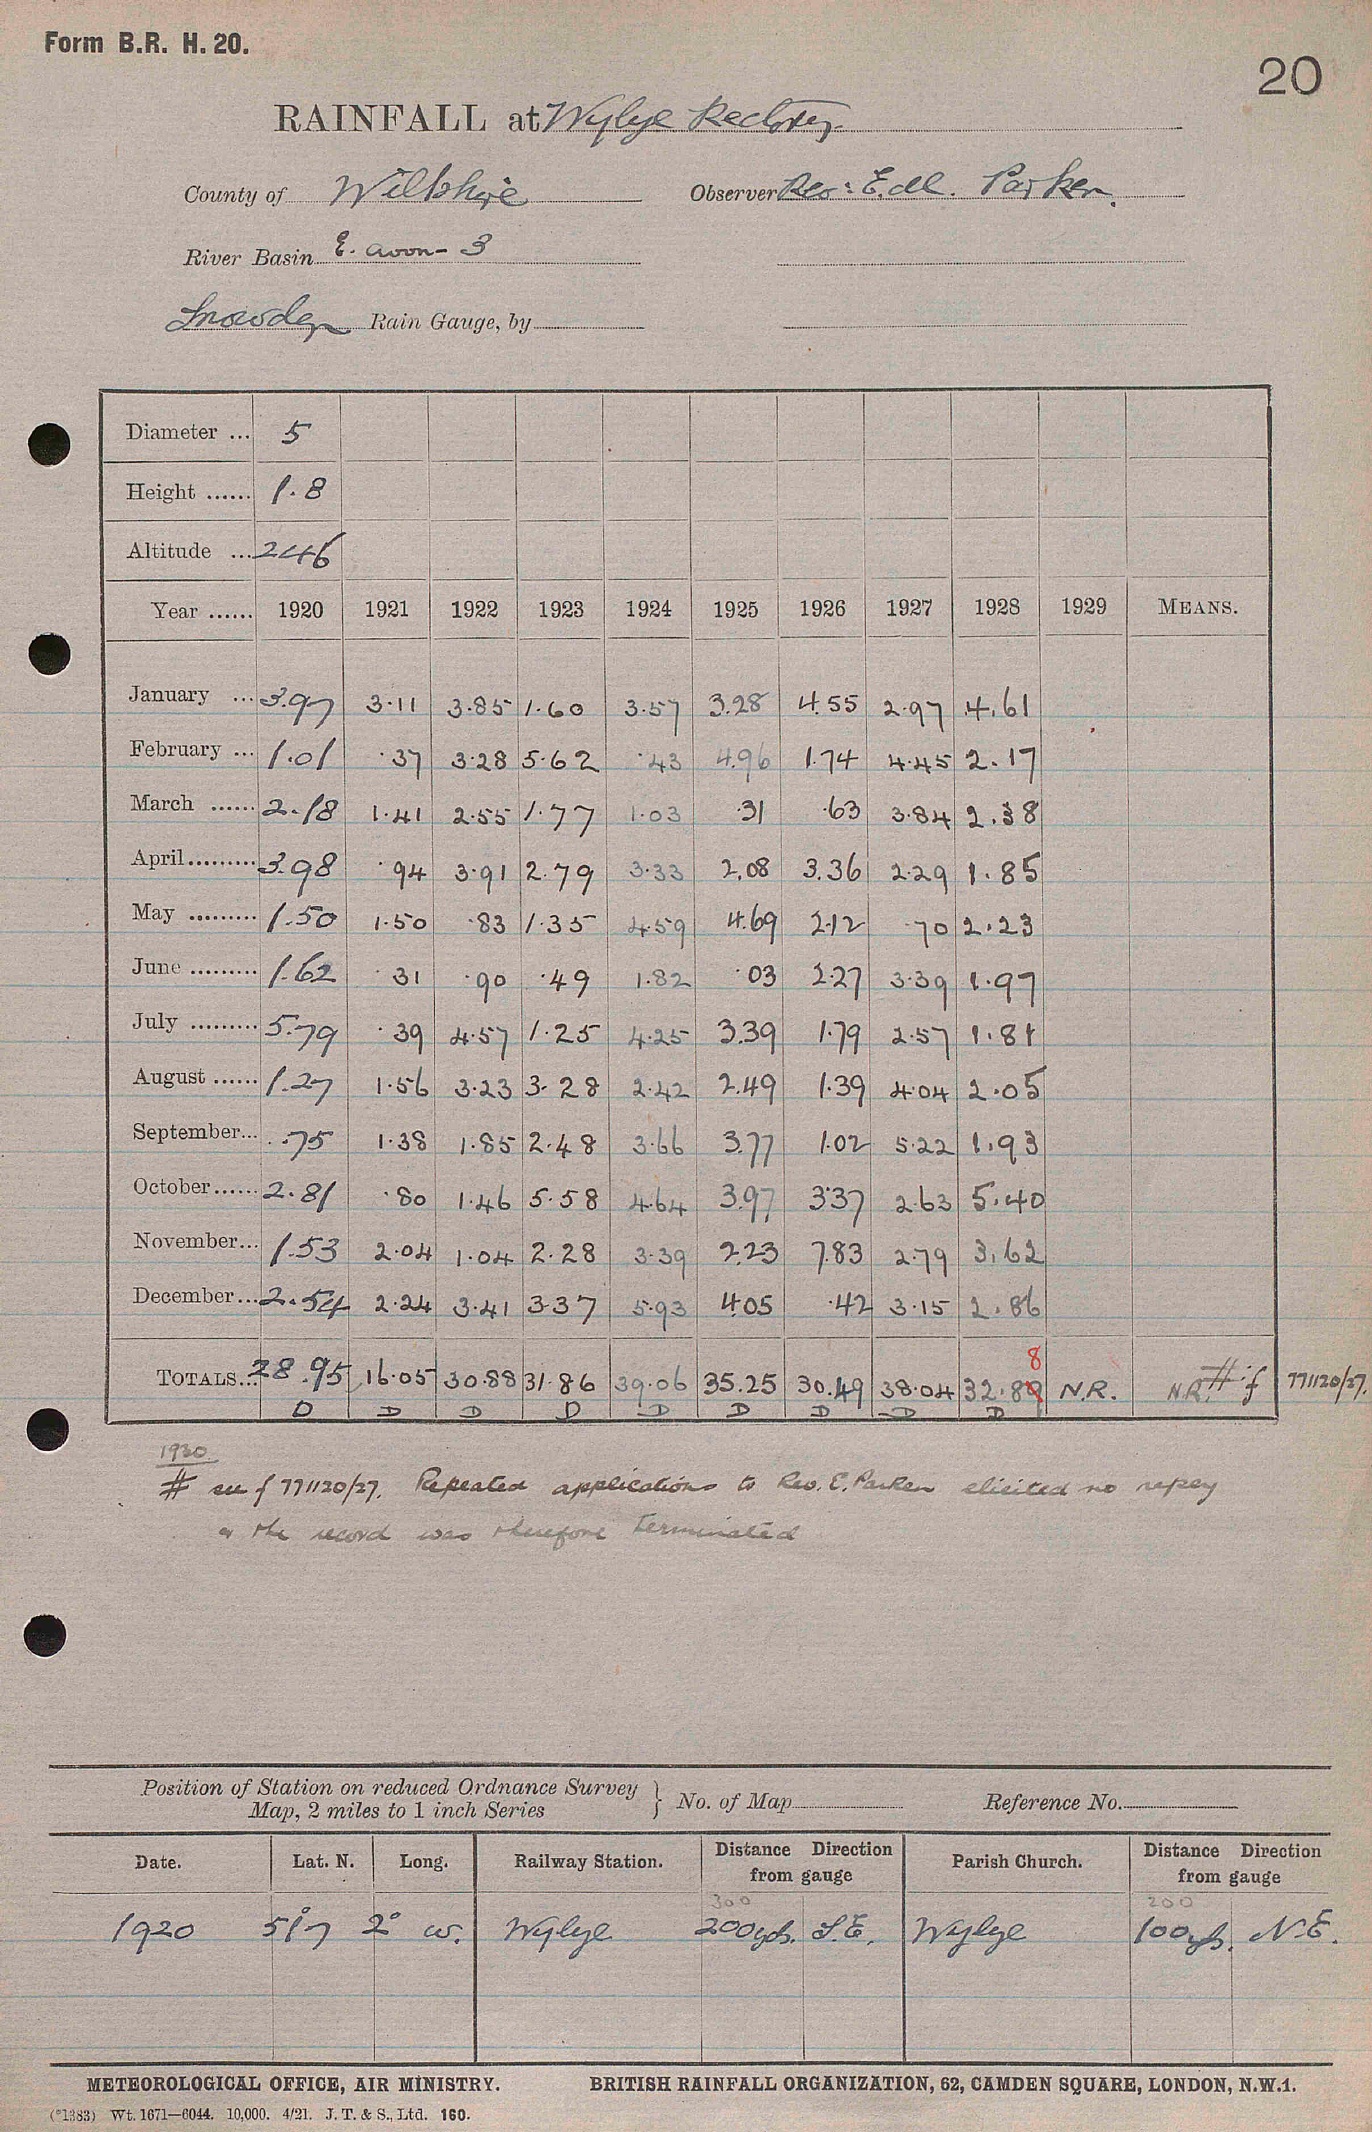 Form B.R. H. 20.
20
RAINFALL at Wylye Rectory
County of Wiltshire Observer Rev: E. M. Parker.
River Basin E. Avon - 3
Snowdon Rain Gauge, by
Diameter ... 5
Height ...... 1.8
Altitude ... 246
Year ...... 1920 1921 1922 1923 1924 1925 1926 1927 1928 1929 MEANS.
January ... 3.97 3.11 3.85 1.60 3.57 3.28 4.55 2.97 4.61
February ... 1.01 .37 3.28 5.62 .43 4.96 1.74 4.45 2.17
March ...... 2.18 1.41 2.55 1.77 1.03 .31 .63 3.84 2.38
April ......... 3.98 .94 3.91 2.79 3.33 2.08 3.36 2.29 1.85
May ......... 1.50 1.50 .83 1.35 4.59 4.69 2.12 .70 2.23
June ......... 1.62 .31 .90 .49 1.82 .03 2.27 3.39 1.97
July ......... 5.79 .39 4.57 1.25 4.25 3.39 1.79 2.57 1.81
August ...... 1.27 1.56 3.23 3.28 2.42 2.49 1.39 4.04 2.05
September... .75 1.38 1.85 2.48 3.66 3.77 1.02 5.22 1.93
October ...... 2.81 .80 1.46 5.58 4.64 3.97 3.37 2.63 5.40
November... 1.53 2.04 1.04 2.28 3.39 2.23 7.83 2.79 3.62
December ... 2.54 2.24 3.41 3.37 5.93 4.05 .42 3.15 2.86
8
TOTALS... 28.95 16.05 30.88 31.86 39.06 35.25 30.49 38.04 32.89 N.R. N.R. # f 771120/27.
D D D D D D D D D
1930
# see f 771120/27. Repeated applications to Rev. E. Parker elicited no reply
& the record was therefore terminated
Position of Station on reduced Ordnance Survey
Map, 2 miles to 1 inch Series } No. of Map Reference No.
Date. Lat. N. Long. Railway Station. Distance Direction from gauge Parish Church. Distance Direction from gauge
300 200
1920 51°7 2° W. Wylye 200 yds. S.E. Wylye 100 yds. N.E.
METEOROLOGICAL OFFICE, AIR MINISTRY. BRITISH RAINFALL ORGANIZATION, 62, CAMDEN SQUARE, LONDON, N.W.1.
(*1383) Wt. 1671—6044. 10,000. 4/21. J. T. & S., Ltd. 160.